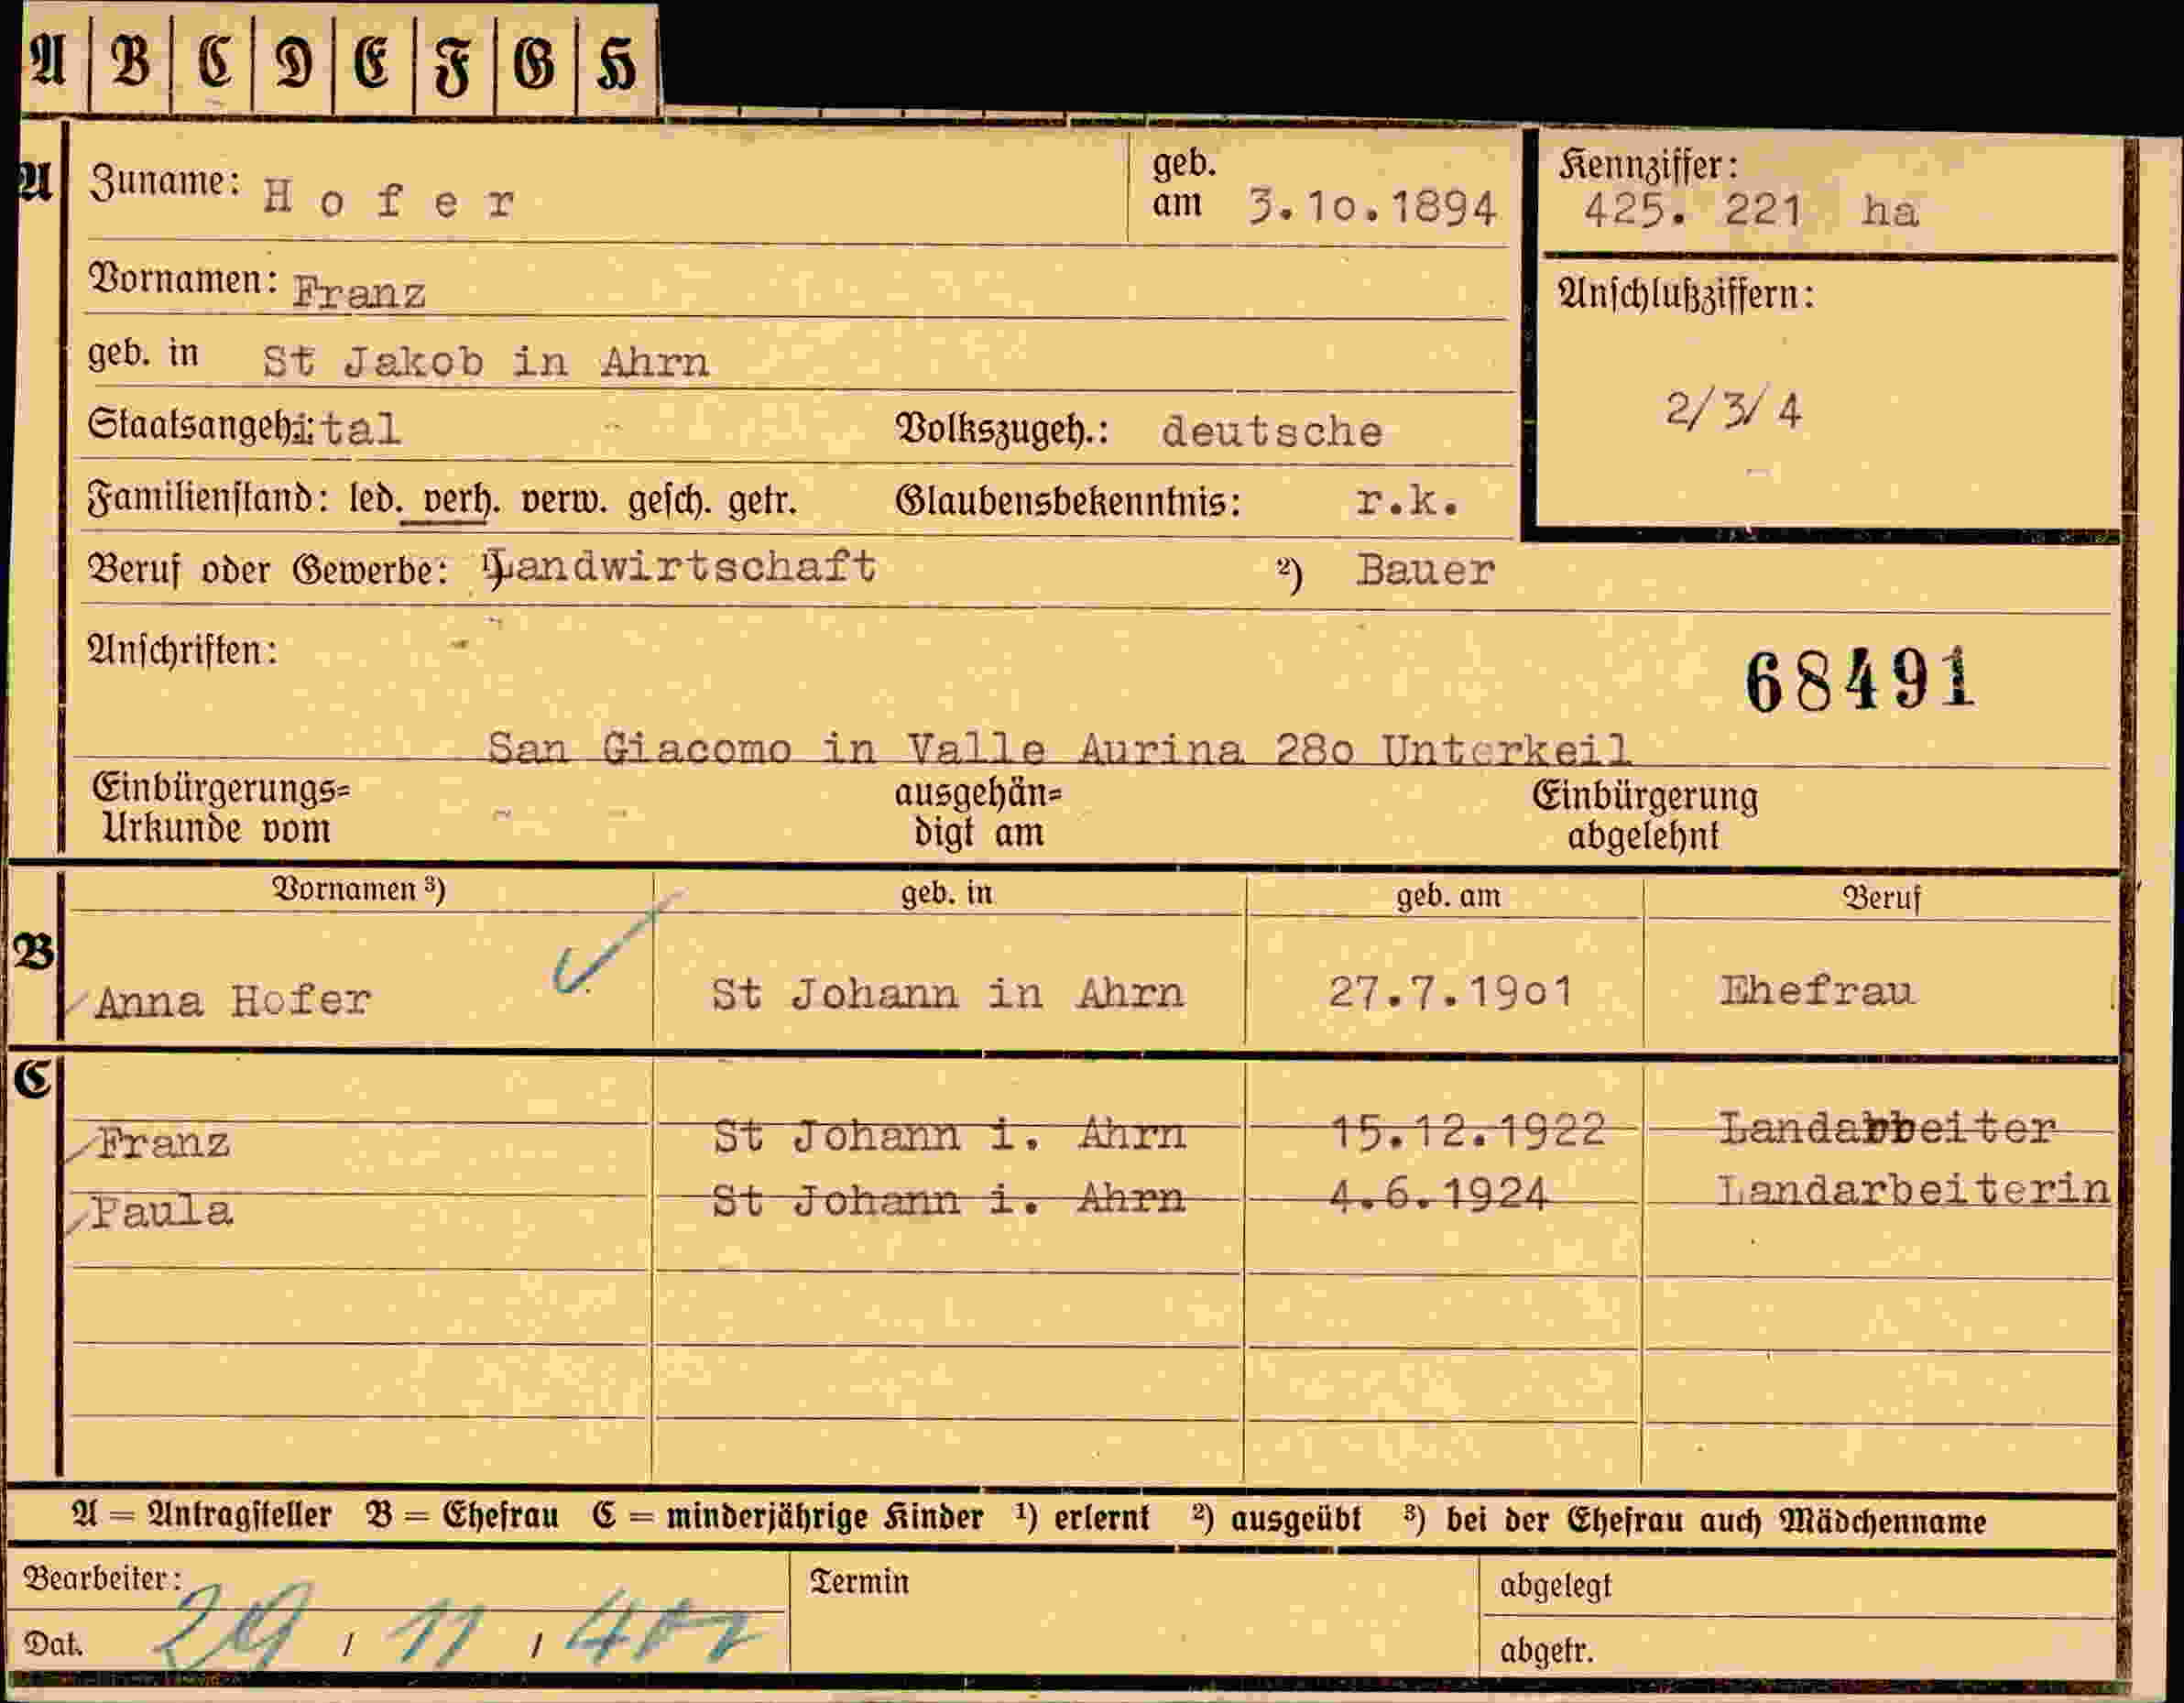 A B C D E F G H
A Zuname: Hofer geb. am 3.10.1894 Kennziffer: 425. 221 ha
Vornamen: Franz Anschlußziffern:
geb. in St Jakob in Ahrn
Staatsangeh.: ital Volkszugeh.: deutsche 2/3/4
Familienstand: led. verh. verw. gesch. getr. Glaubensbekenntnis: r.k.
Beruf oder Gewerbe: ¹) Landwirtschaft ²) Bauer
Anschriften: 68491
San Giacomo in Valle Aurina 280 Unterkeil
Einbürgerungs= ausgehän= Einbürgerung
Urkunde vom digt am abgelehnt
Vornamen ³) geb. in geb. am Beruf
B Anna Hofer St Johann in Ahrn 27.7.1901 Ehefrau
C
Franz St Johann i. Ahrn 15.12.1922 Landabbeiter
Paula St Johann i. Ahrn 4.6.1924 Landarbeiterin
A = Antragsteller B = Ehefrau C = minderjährige Kinder ¹) erlernt ²) ausgeübt ³) bei der Ehefrau auch Mädchenname
Bearbeiter: Termin abgelegt
Dat. 29 / 11 / abgetr.